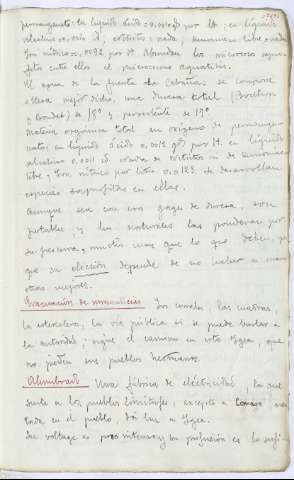 permanganato: en líquido ácido = 0,0010 gr por lit.: en líquido
alcalino = 0,0010 id; nitritos = nada; amoniaco libre = nada
Ion nítrico = 0,0092 por lit. Abundan los micrococos
entre ellos el micrococcus aquatilis.
El agua de la fuente La Cabaña: se compone
mejor dicho, una dureza total (Boutron
y Boudet) de 18º y persistente de 17º
Materia orgánica total en oxígeno de permanga-
nato: en líquido ácido 0,0012 gr por lit. en líquido
alcalino 0,0011 id nada de nitritos ni de amoniaco
libre y Ion nítrico por litro 0,0123. Se desarrollan
especies saprofitas en ellas.
Aunque sea con esos grados de dureza, son
potables y los naturales las ponderan por
su frescura, mucho mas que lo que deben, por
que su elección depende de no haber a mano
otras mejores.
Evacuación de inmundicias. Los corrales, las cuadras,
la estercolera, la vía pública si se puede burlar a
la autoridad; sigue el camino en esto Igea, que
no pierden sus pueblos hermanos.
Alumbrado Una fábrica de electricidad, la que
surte a los pueblos limítrofes, excepto a Cornago
en el pueblo, da luz a Igea.
Su voltage es poco intenso y su profusión es la sufi-